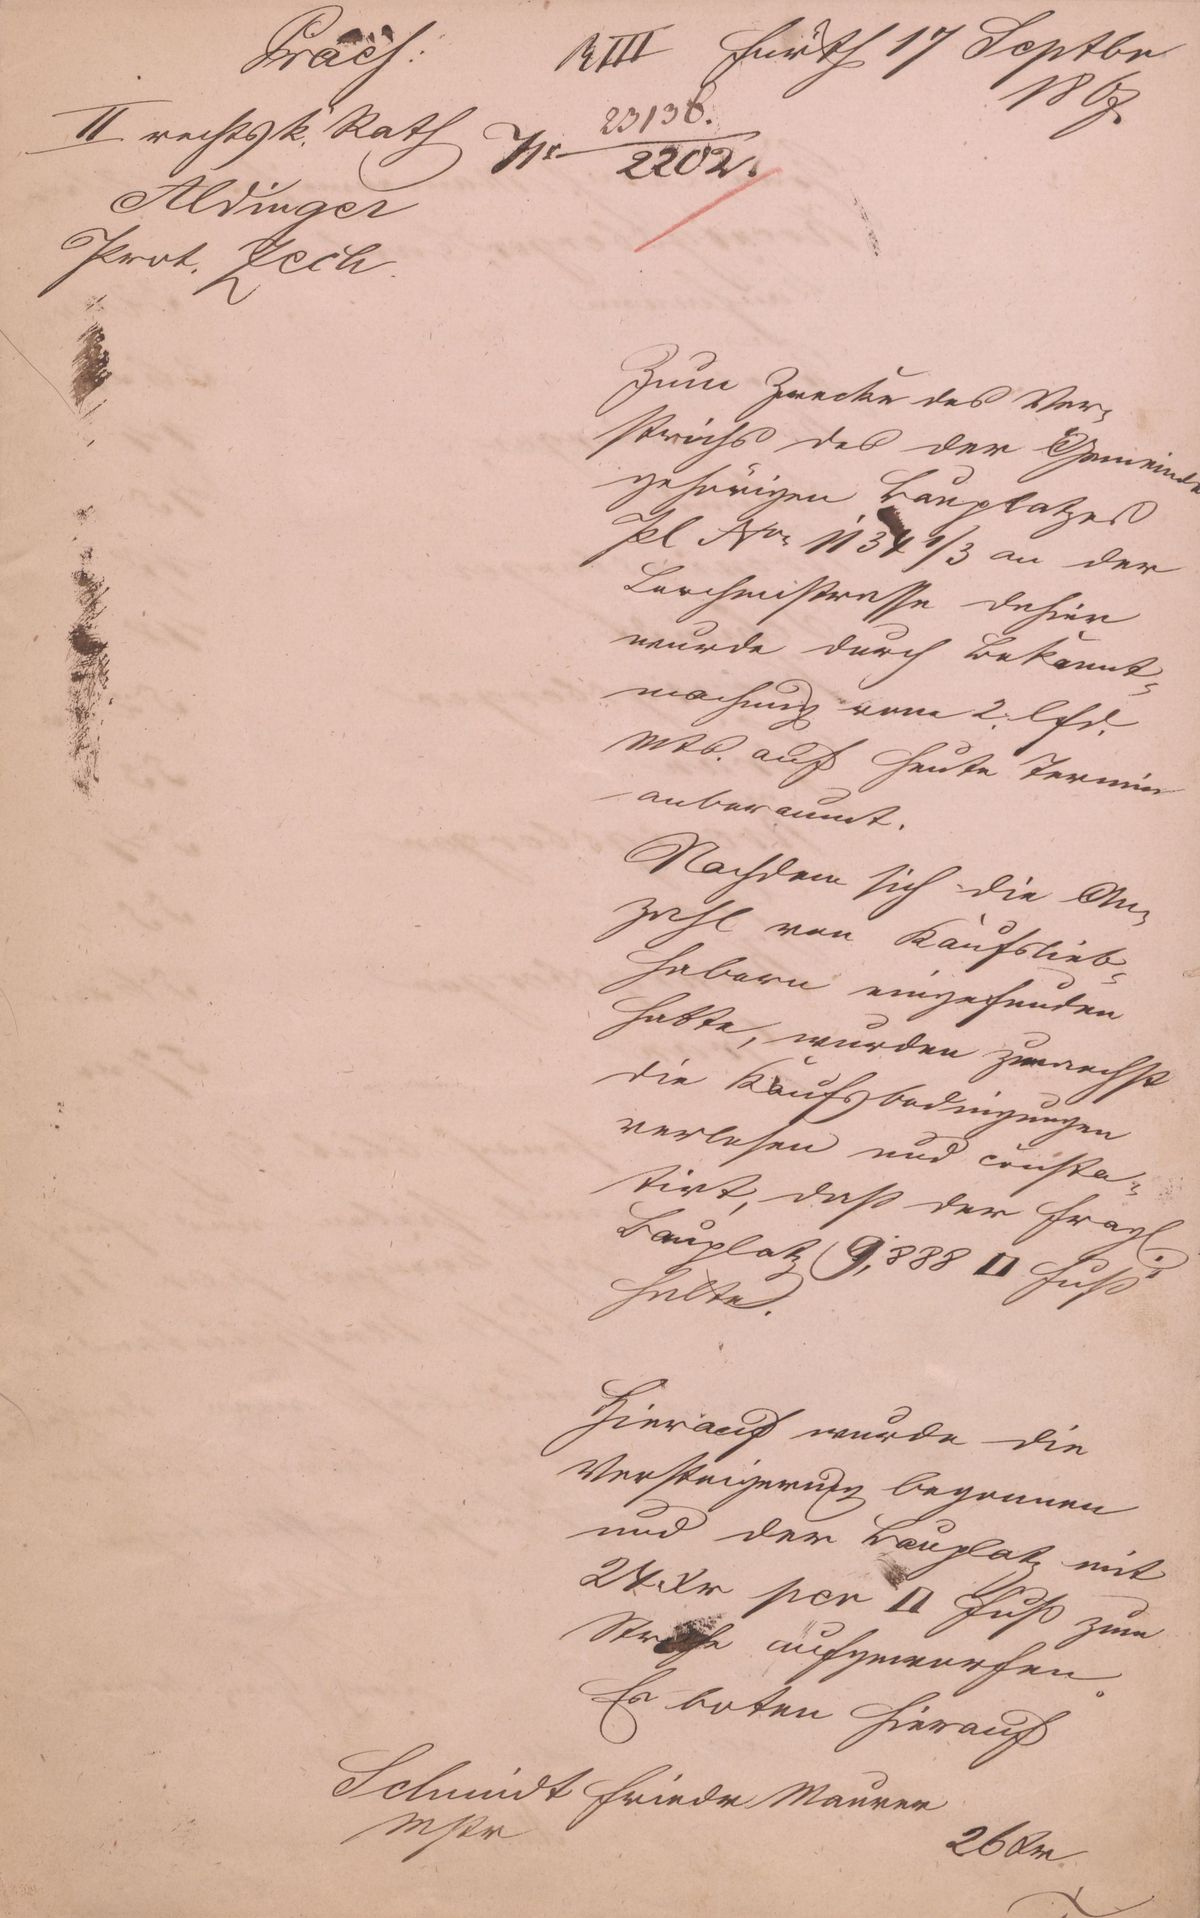 Präs:
R III Fürth 17 Septbr
1867.
II rechtsk. Rath
Nr. 23138.
2202.
Aldinger
Prot. Zech.
Zum Zwecke des Ver-
strichs des der Gemeinde
gehörigen Bauplatzes
Pl Nro 1134 1/3 an der
Lerchenstrasse dahier
wurde durch Bekannt-
machung vom 2. lfd.
Mts. auf heute Termin
anberaumt.
Nachdem sich die An-
zahl von Kaufslieb-
habern eingefunden
hatte, wurden zunaechst
die Kaufsbedingungen
verlesen und consta-
tirt, daß der fragl.
Bauplatz 9,888 □ Fuß
halte.
Hierauf wurde die
Versteigerung begonnen
und der Bauplatz mit
24 Xr per □ Fuß zum
Striche aufgeworfen.
Es boten hierauf
Schmidt Friedr Maurer
Mstr
26 Xr